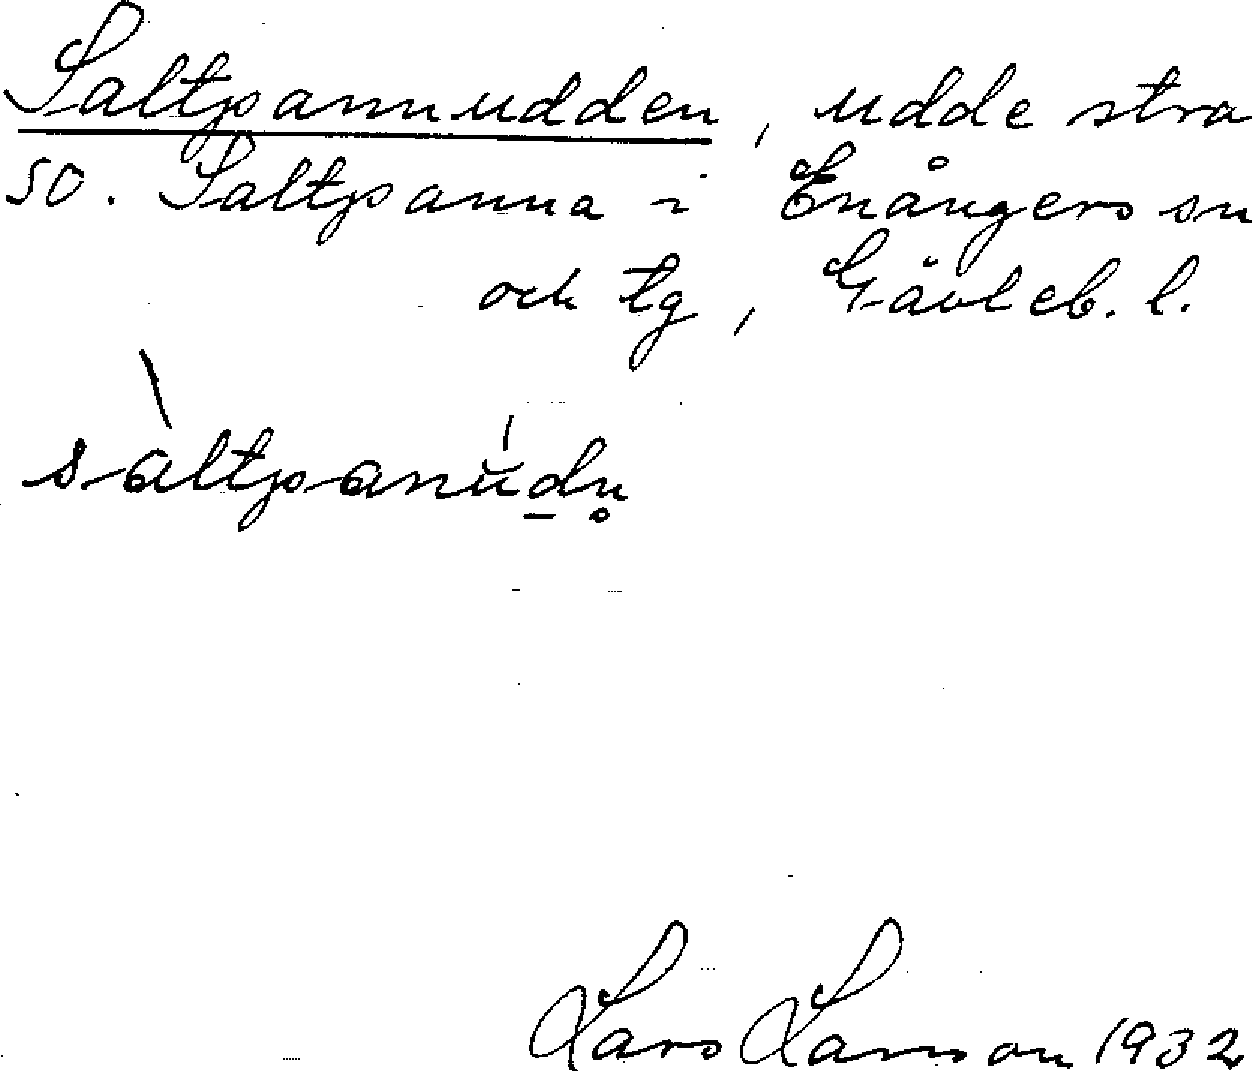 Saltpannudden, udde stra
SO. Saltpanna i Enångers sn
och tg, Gävleb. l.
sàltpanúdn̥
Lars Larsson 1932